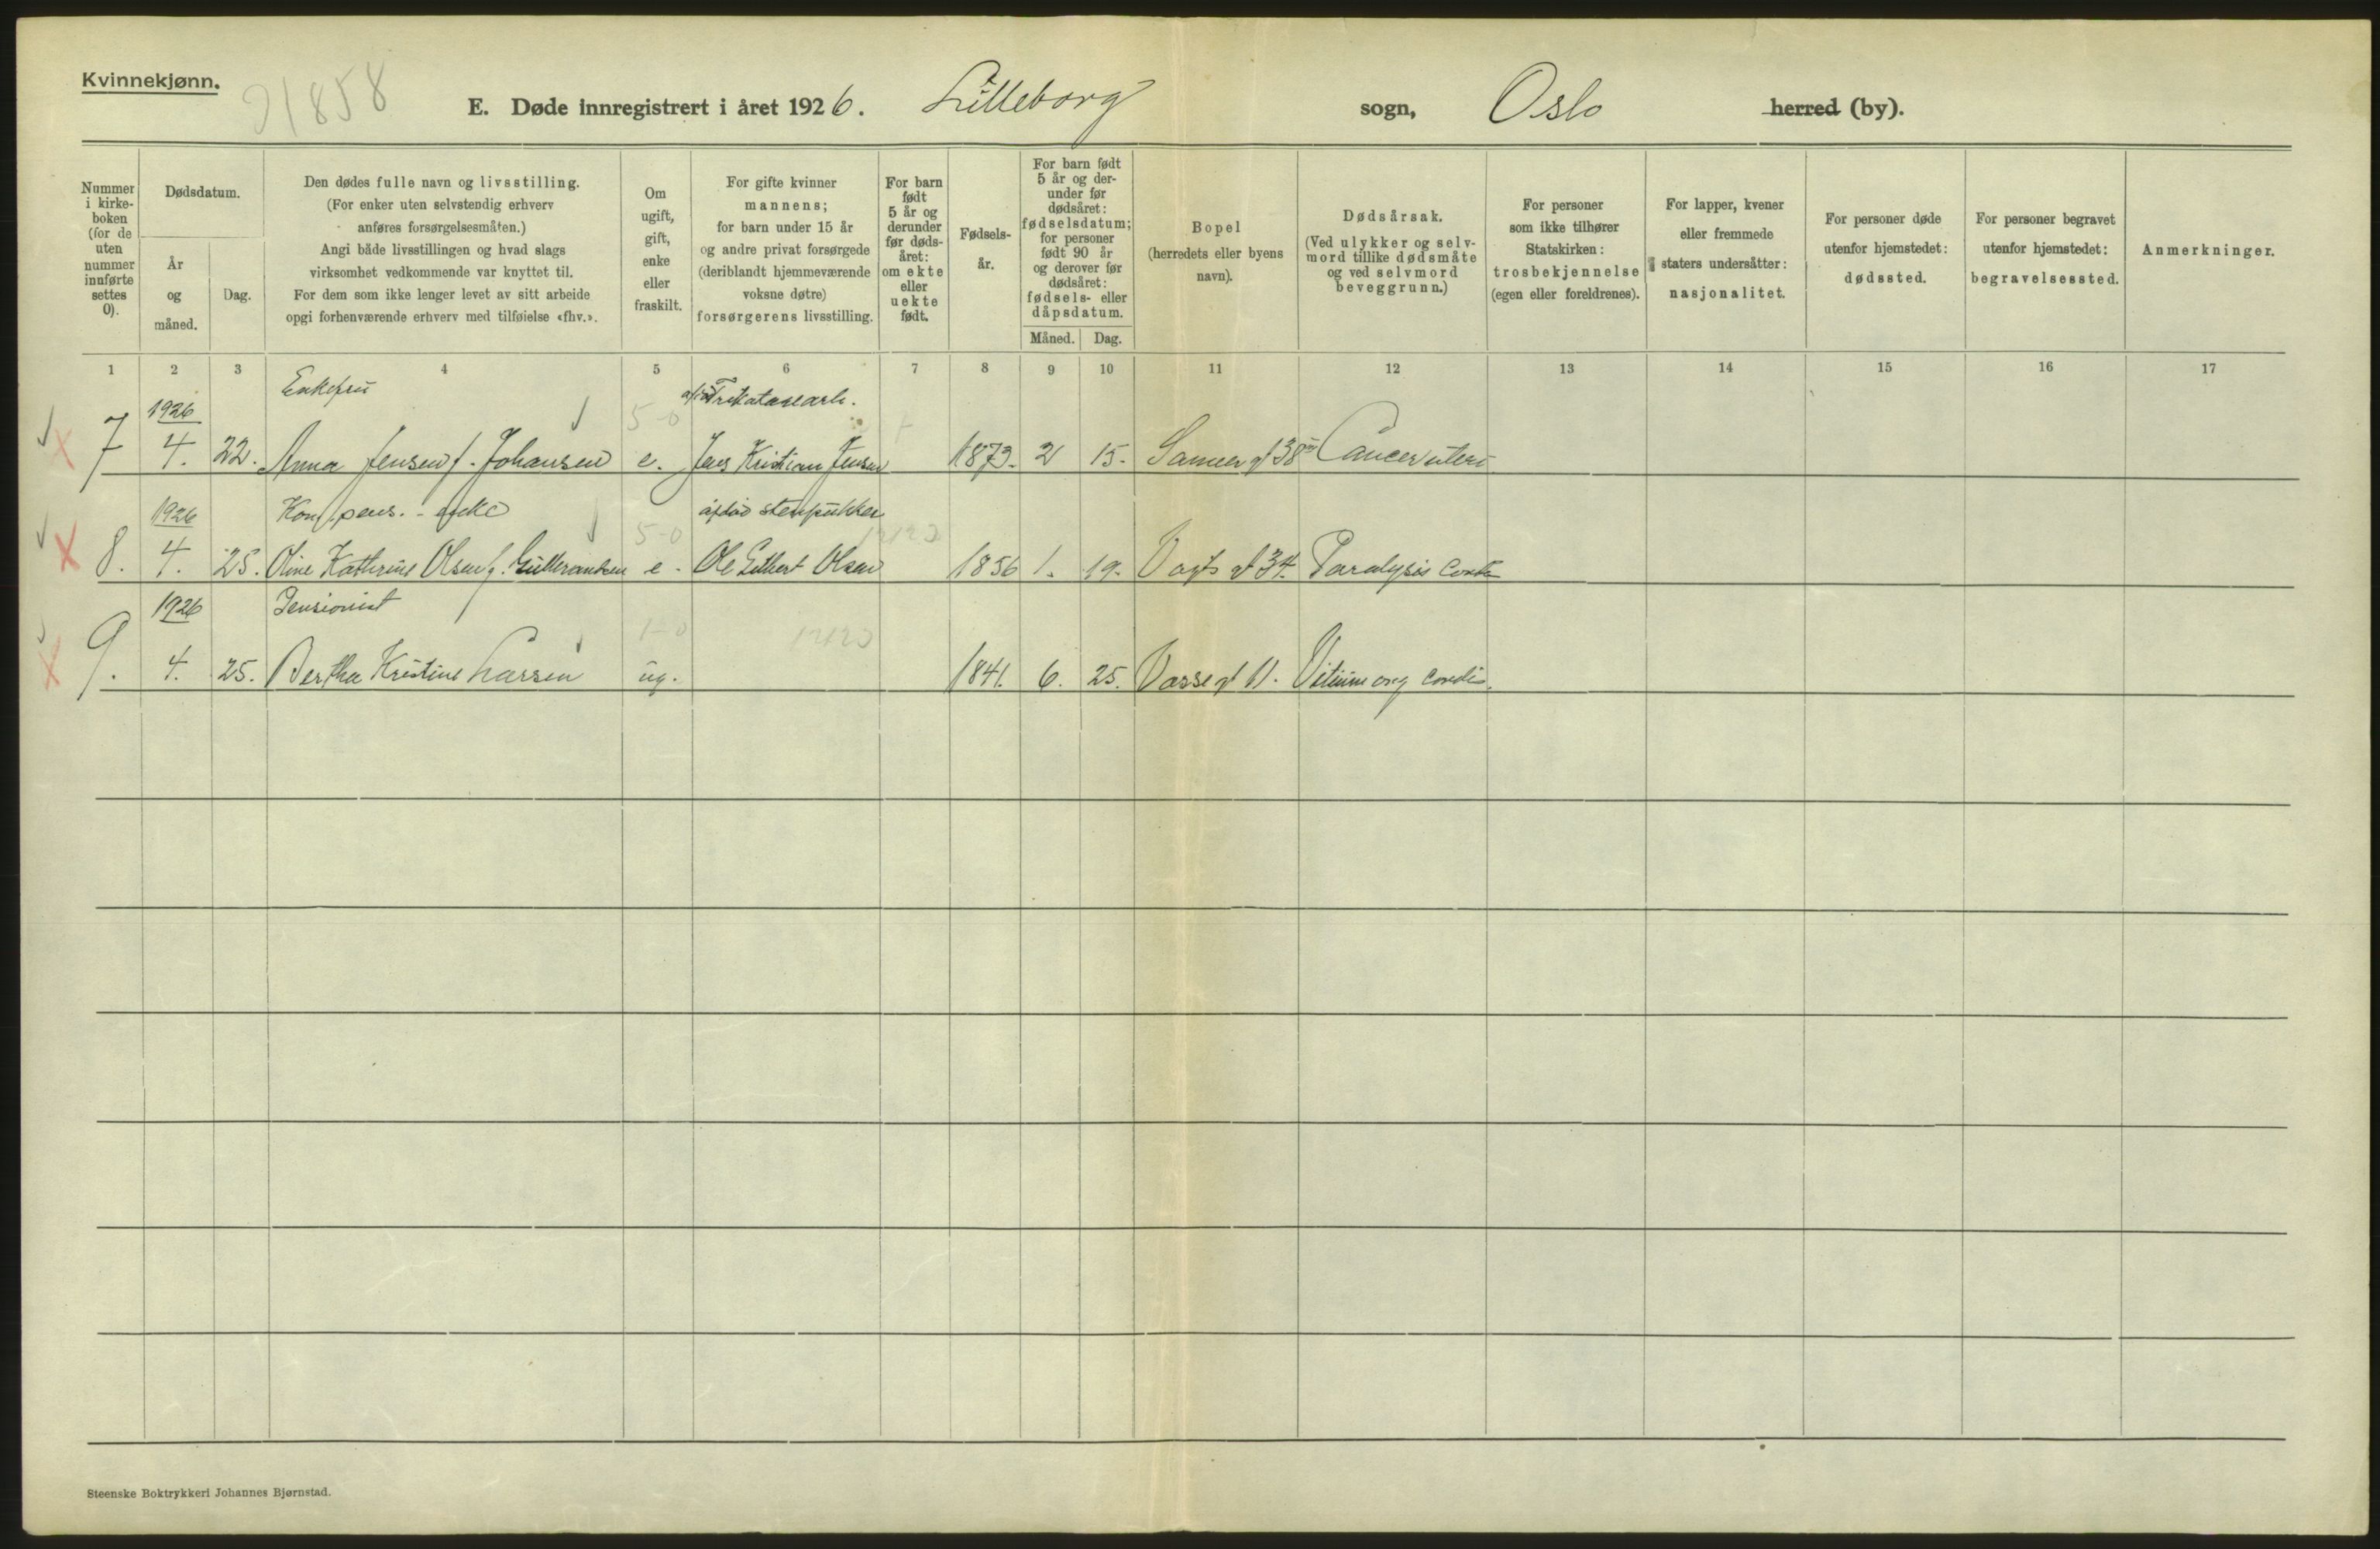 Kvinnekjønn.
91858
E. Døde innregistrert i året 1926. Lilleborg sogn, Oslo herred (by).
Nummer i kirke- boken (for de uten nummer innførte settes 0).
Dødsdatum.
År og måned.
Dag.
Den dødes fulle navn og livsstilling.
(For enker uten selvstendig erhverv
anføres forsørgelsesmåten.)
Angi både livsstillingen og hvad slags
virksomhet vedkommende var knyttet til.
For dem som ikke lenger levet av sitt arbeide
opgi forhenværende erhverv med tilføielse «fhv.».
Om ugift, gift, enke eller fraskilt.
For gifte kvinner
mannens;
for barn under 15 år
og andre privat forsørgede
(deriblandt hjemmeværende
voksne døtre)
forsørgerens livsstilling.
For barn født 5 år og derunder før døds- året: om ekte eller uekte født.
Fødsels- år.
For barn født 5 år og der- under før dødsåret: fødselsdatum; for personer født 90 år og derover før dødsåret: fødsels- eller dåpsdatum.
Måned. Dag.
Bopel
(herredets eller byens
navn).
Dødsårsak.
(Ved ulykker og selv-
mord tillike dødsmåte
og ved selvmord
beveggrunn.)
For personer
som ikke tilhører
Statskirken:
trosbekjennelse
(egen eller foreldrenes).
For lapper, kvener
eller fremmede
staters undersåtter:
nasjonalitet.
For personer døde
utenfor hjemstedet:
dødssted.
For personer begravet
utenfor hjemstedet:
begravelsessted.
Anmerkninger.
1 2 3 4 5 6 7 8 9 10 11 12 13 14 15 16 17
1926 Enkefru 5-0
7 4. 22. Anna Jensen f. Johansen e. Jens Kristian Jensen 1873. 2 15. Sannerg 38 Cancer uteri
1926 Kom. pens. - enke 5-0 afdød stenpukker
8. 4. 25. Oline Kathrine Olsen f. e. Ole Olsen 1856 1. 19. Vogts gt 34. Paralysis
1926 Pensionist 1-0
9. 4. 25. Bertha Kristine Larsen ug. 1841. 6. 25. gt 11. Vitium org cordis.
Steenske Boktrykkeri Johannes Bjørnstad.